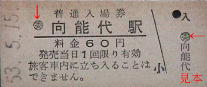 53.5.15
普通入場券
向能代駅
料金60円
発売当日1回限り有効
旅客車内に立ち入ることは
できません。
小
入
向能代
見本